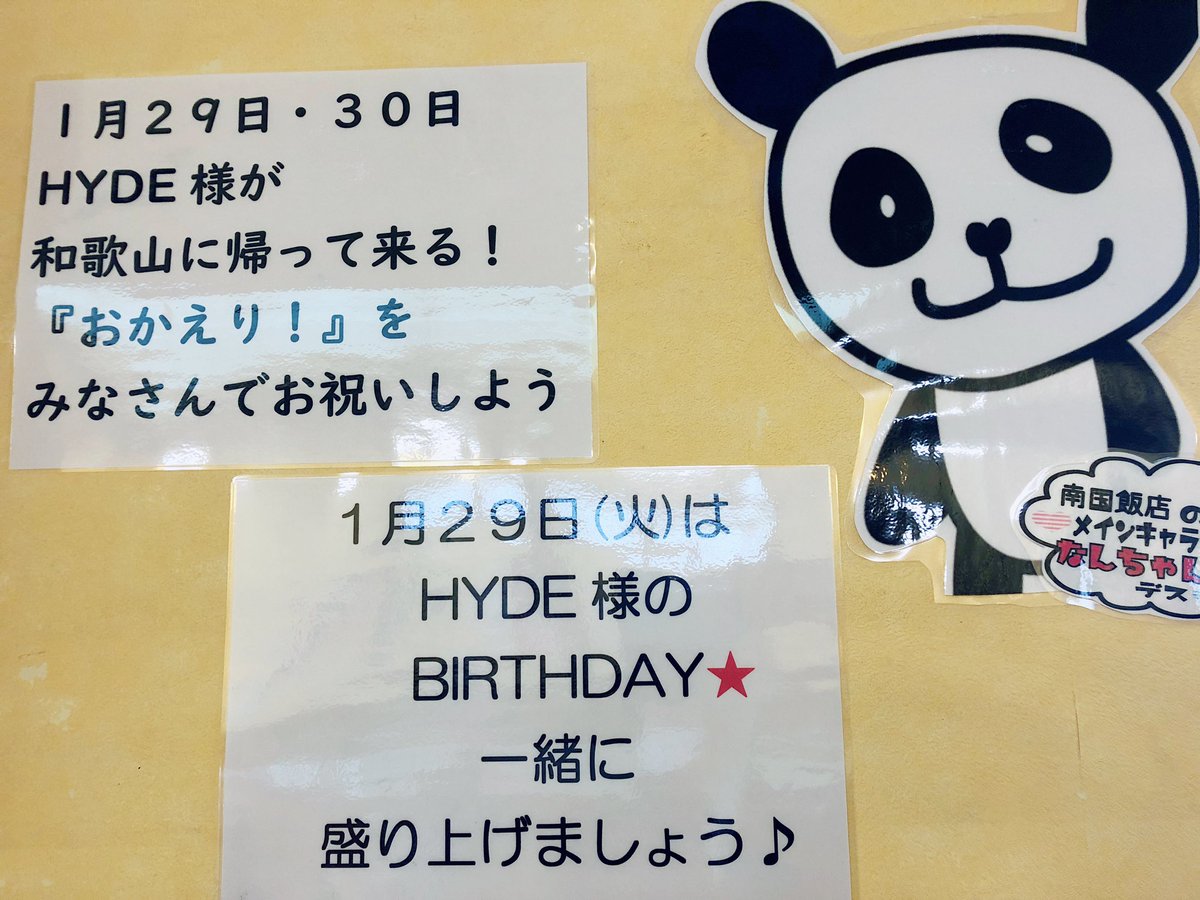 １月２９日・３０日
HYDE 様が
和歌山に帰って来る！
『おかえり！』を
みなさんでお祝いしよう
１月２９日(火)は
HYDE 様の
BIRTHDAY★
一緒に
盛り上げましょう♪
南国飯店 の
メインキャラ
なんちゃん
デス